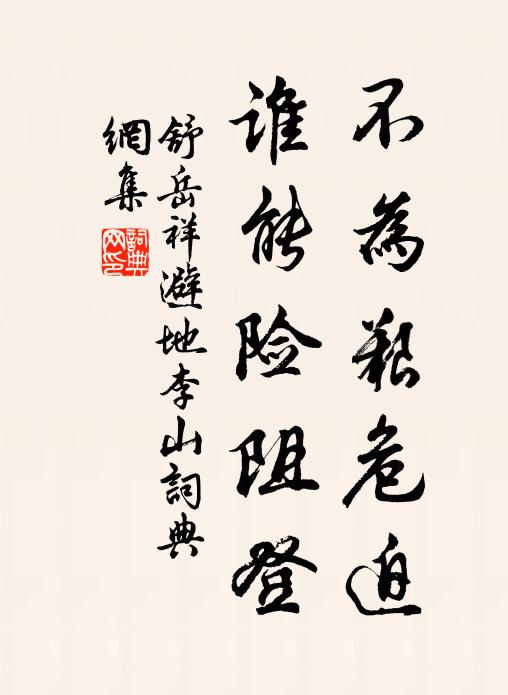 不為艱危迫
谁能险阻登
舒岳祥避地李山詞典
網集
詞典網印